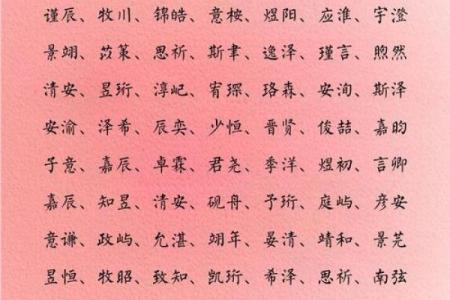 谨辰、牧川、锦皓、意桉、煜阳、应淮、宇澄
景翊、苡策、思祈、斯聿、逸泽、瑾言、煦然
清安、昱珩、淳屺、宥琛、珞森、安洵、斯泽
安渝、泽希、辰奕、少恒、晋贤、俊喆、嘉昀
子意、嘉辰、卓霖、君尧、季洋、煜初、言卿
嘉辰、知昱、清安、砚舟、予珩、庭屿、彦安
意谦、政屿、允湛、翊年、晏清、靖和、景芜
昱恒、牧昭、致知、凯珩、希泽、思祈、南弦